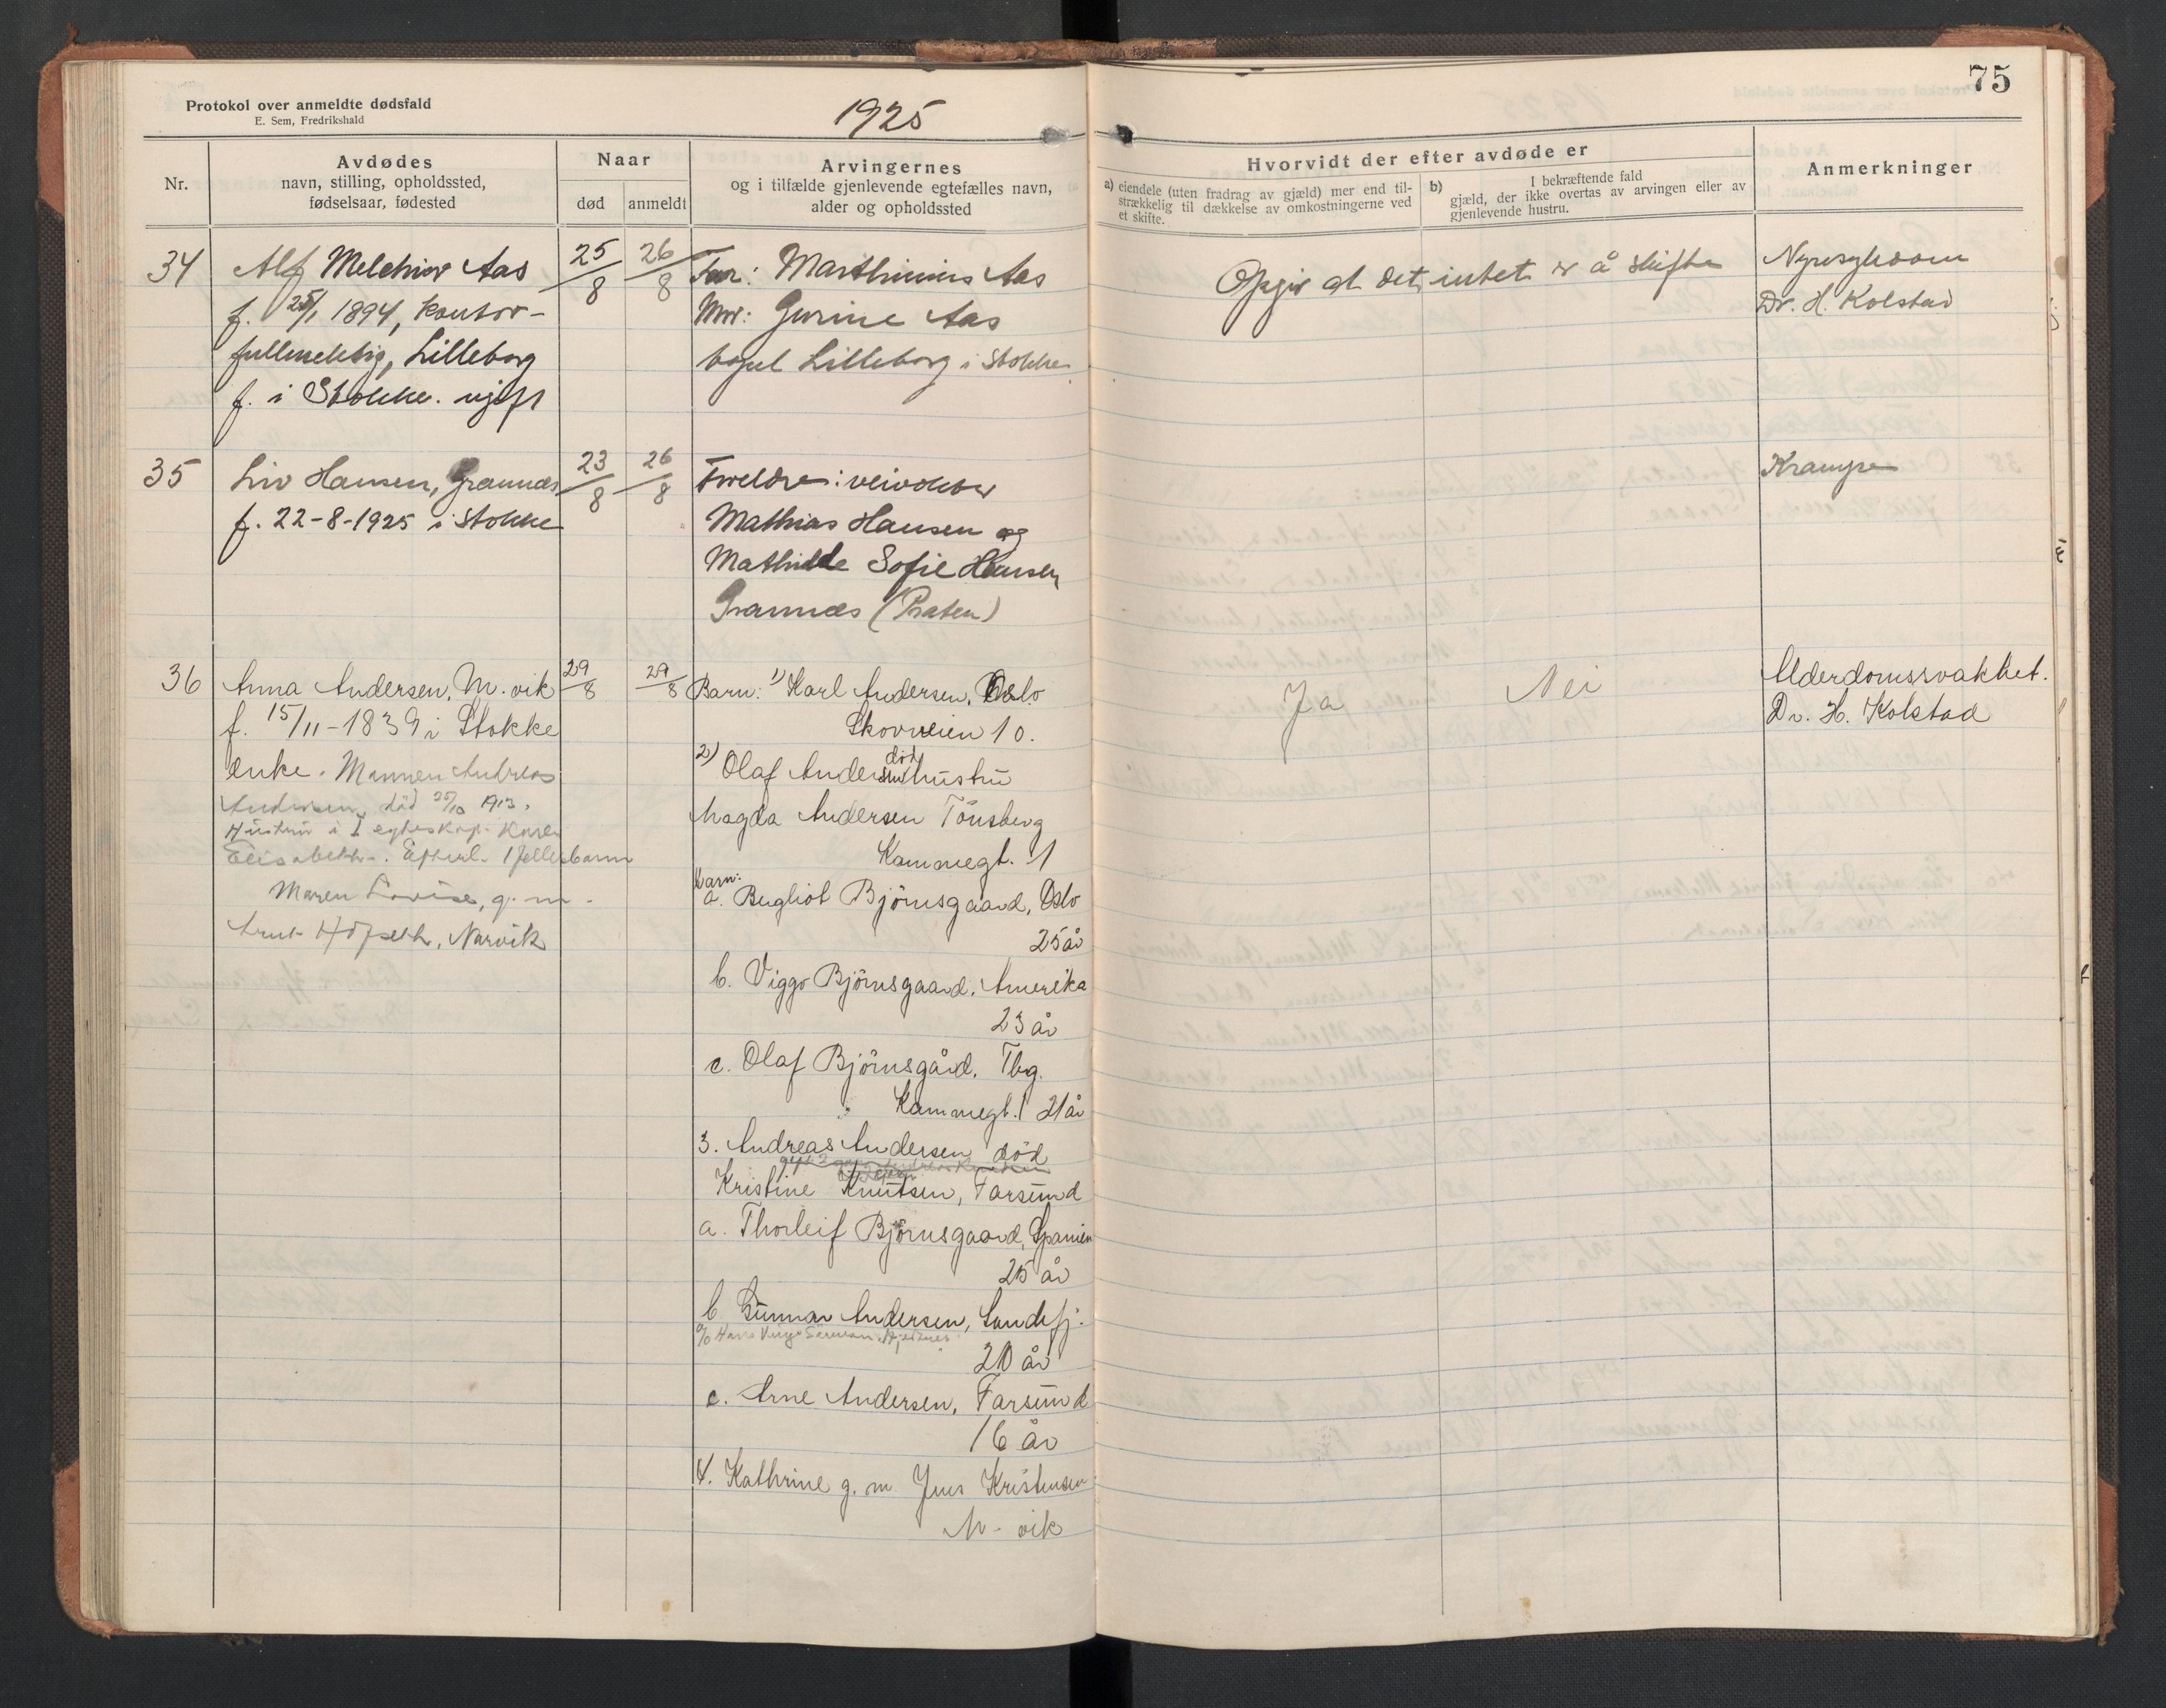 75
Protokol over anmeldte dødsfald
E. Sem, Fredrikshald
1925
Nr.
Avdødes
navn, stilling, opholdssted,
fødselsaar, fødested
Naar
død
anmeldt
Arvingernes
og i tilfælde gjenlevende egtefælles navn,
alder og opholdssted
Hvorvidt der efter avdøde er
a) eiendele (uten fradrag av gjæld) mer end til-
strækkelig til dækkelse av omkostningerne ved
et skifte.
b) I bekræftende fald
gjæld, der ikke overtas av arvingen eller av
gjenlevende hustru.
Anmerkninger
34
Alf Melchior Aas
f. 25/1 1894, kontor-
fullmektig, Lilleborg
f. i Stokke. ugift
25/8
26/8
Far: Marthinius Aas
Mor: Gurine Aas
bopel Lilleborg i Stokke
Opgir at det intet er å skifte
Nyresykdom
Dr. H. Kolstad
35
Liv Hansen, Grannæs
f. 22-8-1925 i Stokke
23/8
26/8
Foreldre: veivokter
Mathias Hansen og
Mathilde Sofie Hansen
Grannæs (Braten)
Krampe
36
Anna Andersen, M. vik
f. 15/11-1839 i Stokke
enke. Mannen Andreas
Andersen, död 25/10 1913.
Hustru i I egteskap. Karen
Elisabeth. Efterl. 1 fellesbarn
Maren Lovise, g. m.
Arnt, Narvik
29/8
29/8
Barn: 1) Karl Andersen, Oslo
Skovveien 10.
2) Olaf Andersen död hustru
Magda Andersen Tönsberg
Kammegt. 1
barn:
a. Bergliot Björnsgaard, Oslo
25 år
b. Viggo Björnsgaard, Amerika
23 år
c. Olaf Björnsgård, Tbg.
Kammegt. 1 21 år
3. Andreas Andersen död
Kristine Knutsen, Farsund
a. Thorleif Björnsgaard, Spanien
25 år
b Gunnar Andersen, Sandefj.
20 år
c. Arne Andersen, Farsund
16 år
4. Kathrine g. m. Jens Kristensen
M- vik
Ja
Nei
Alderdomssvakhet.
Dr. H. Kolstad